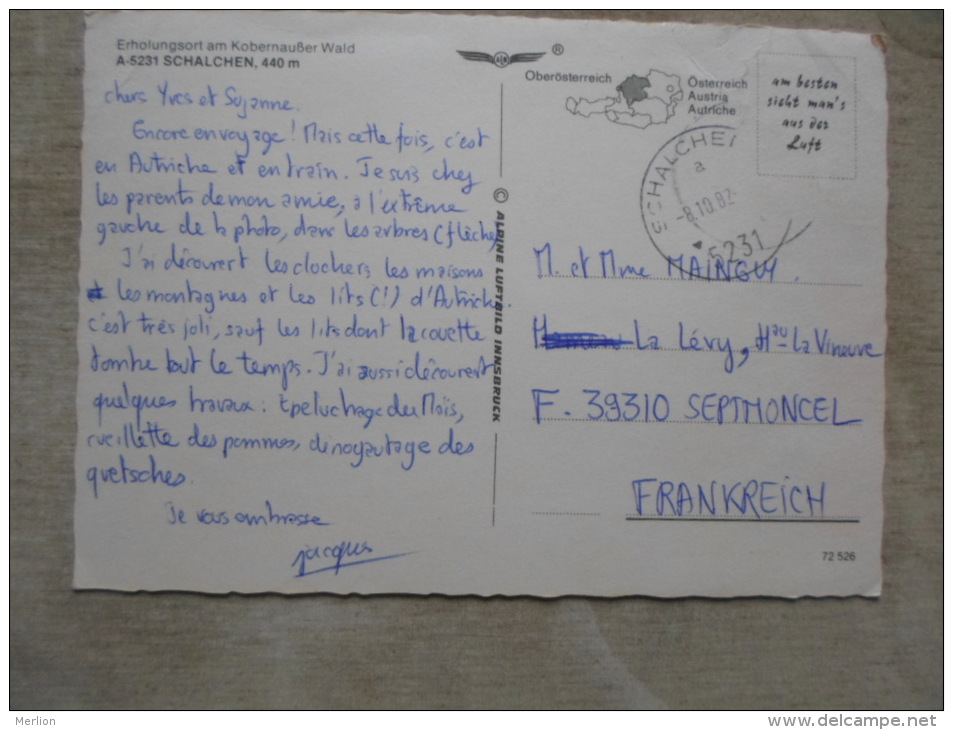 Erholungsort am Kobernaußer Wald
A-5231 SCHALCHEN, 440 m
chers Yves et Suzanne.
Encore en voyage ! Mais cette fois, c'est
en Autriche et en train. Je suis chez
les parents de mon amie, à l'extrême
gauche de la photo, dans les arbres (flèche)
J'ai découvert les clochers, les maisons
les montagnes et les lits (!) d'Autriche.
c'est très joli, sauf les lits dont la couette
tombe tout le temps. J'ai aussi découvert
quelques travaux : Epeluchage du Maïs,
cueillette des pommes, dénoyautage des
quetsches.
Je vous embrasse
jacques
© ALPINE LUFTBILD INNSBRUCK
®
Oberösterreich
Österreich
Austria
Autriche
am besten
sieht man's
aus der
Luft
SCHALCHEN
a
-8.10.82-
5231
M. et Mme MAINGUY.
La Lévy, Hau-La Vineuve
F. 39310 SEPTMONCEL
FRANKREICH
72 526
Merlion
http://www.delcampe.net